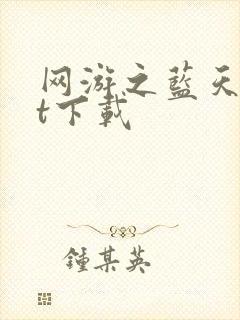 网游之蓝天
t下载
鍾某英